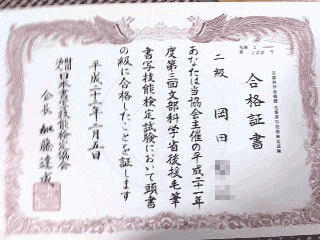 合格証書
二級 岡田
あなたは当協会主催の平成二十一年
度第三回文部科学省後援毛筆
書写技能検定試験において頭書
の級に合格したことを証します
平成二十二年二月五日
財団法人日本書写技能検定協会
会長 加藤達成